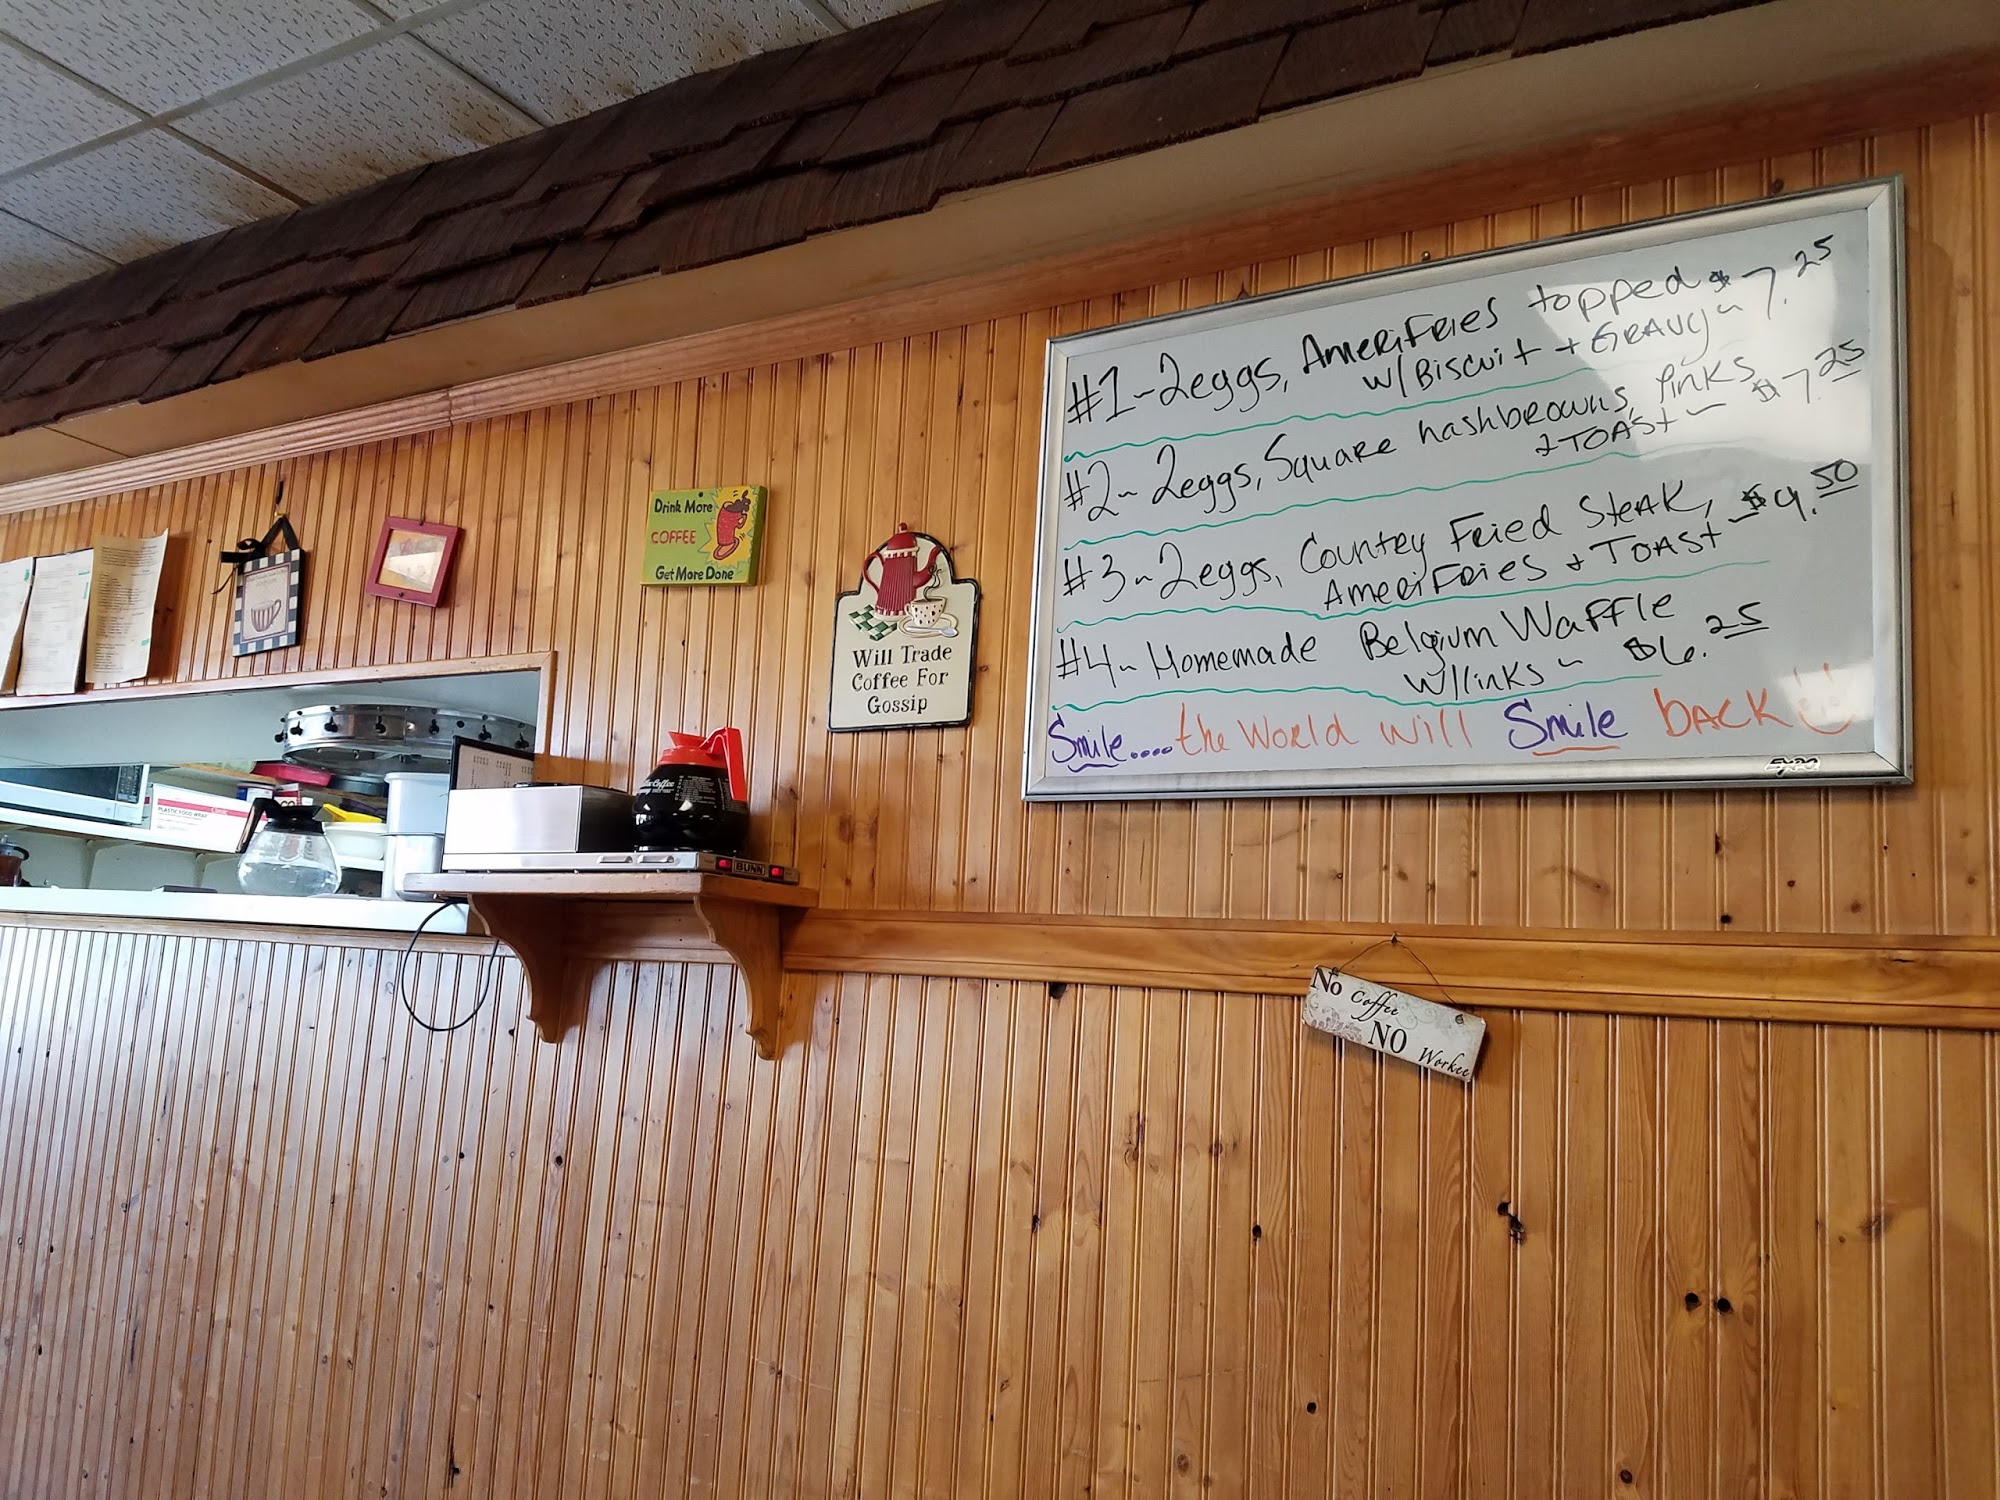 #1-2eggs, AmeriFries topped
w/Biscuit + GRAVY ~ $7.25
#2~ 2eggs, Square hashbrowns, links
+ TOAST ~ $7.25
#3~ 2eggs, Country Fried Steak,
AmeriFries + TOAST ~ $9.50
#4~ Homemade Belgium Waffle
w/links ~ $6.25
Smile.... the World will Smile back
EXPO
Drink More
COFFEE
Get More Done
Will Trade
Coffee For
Gossip
No Coffee
NO Workee
BUNN
PLASTIC FOOD WRAP